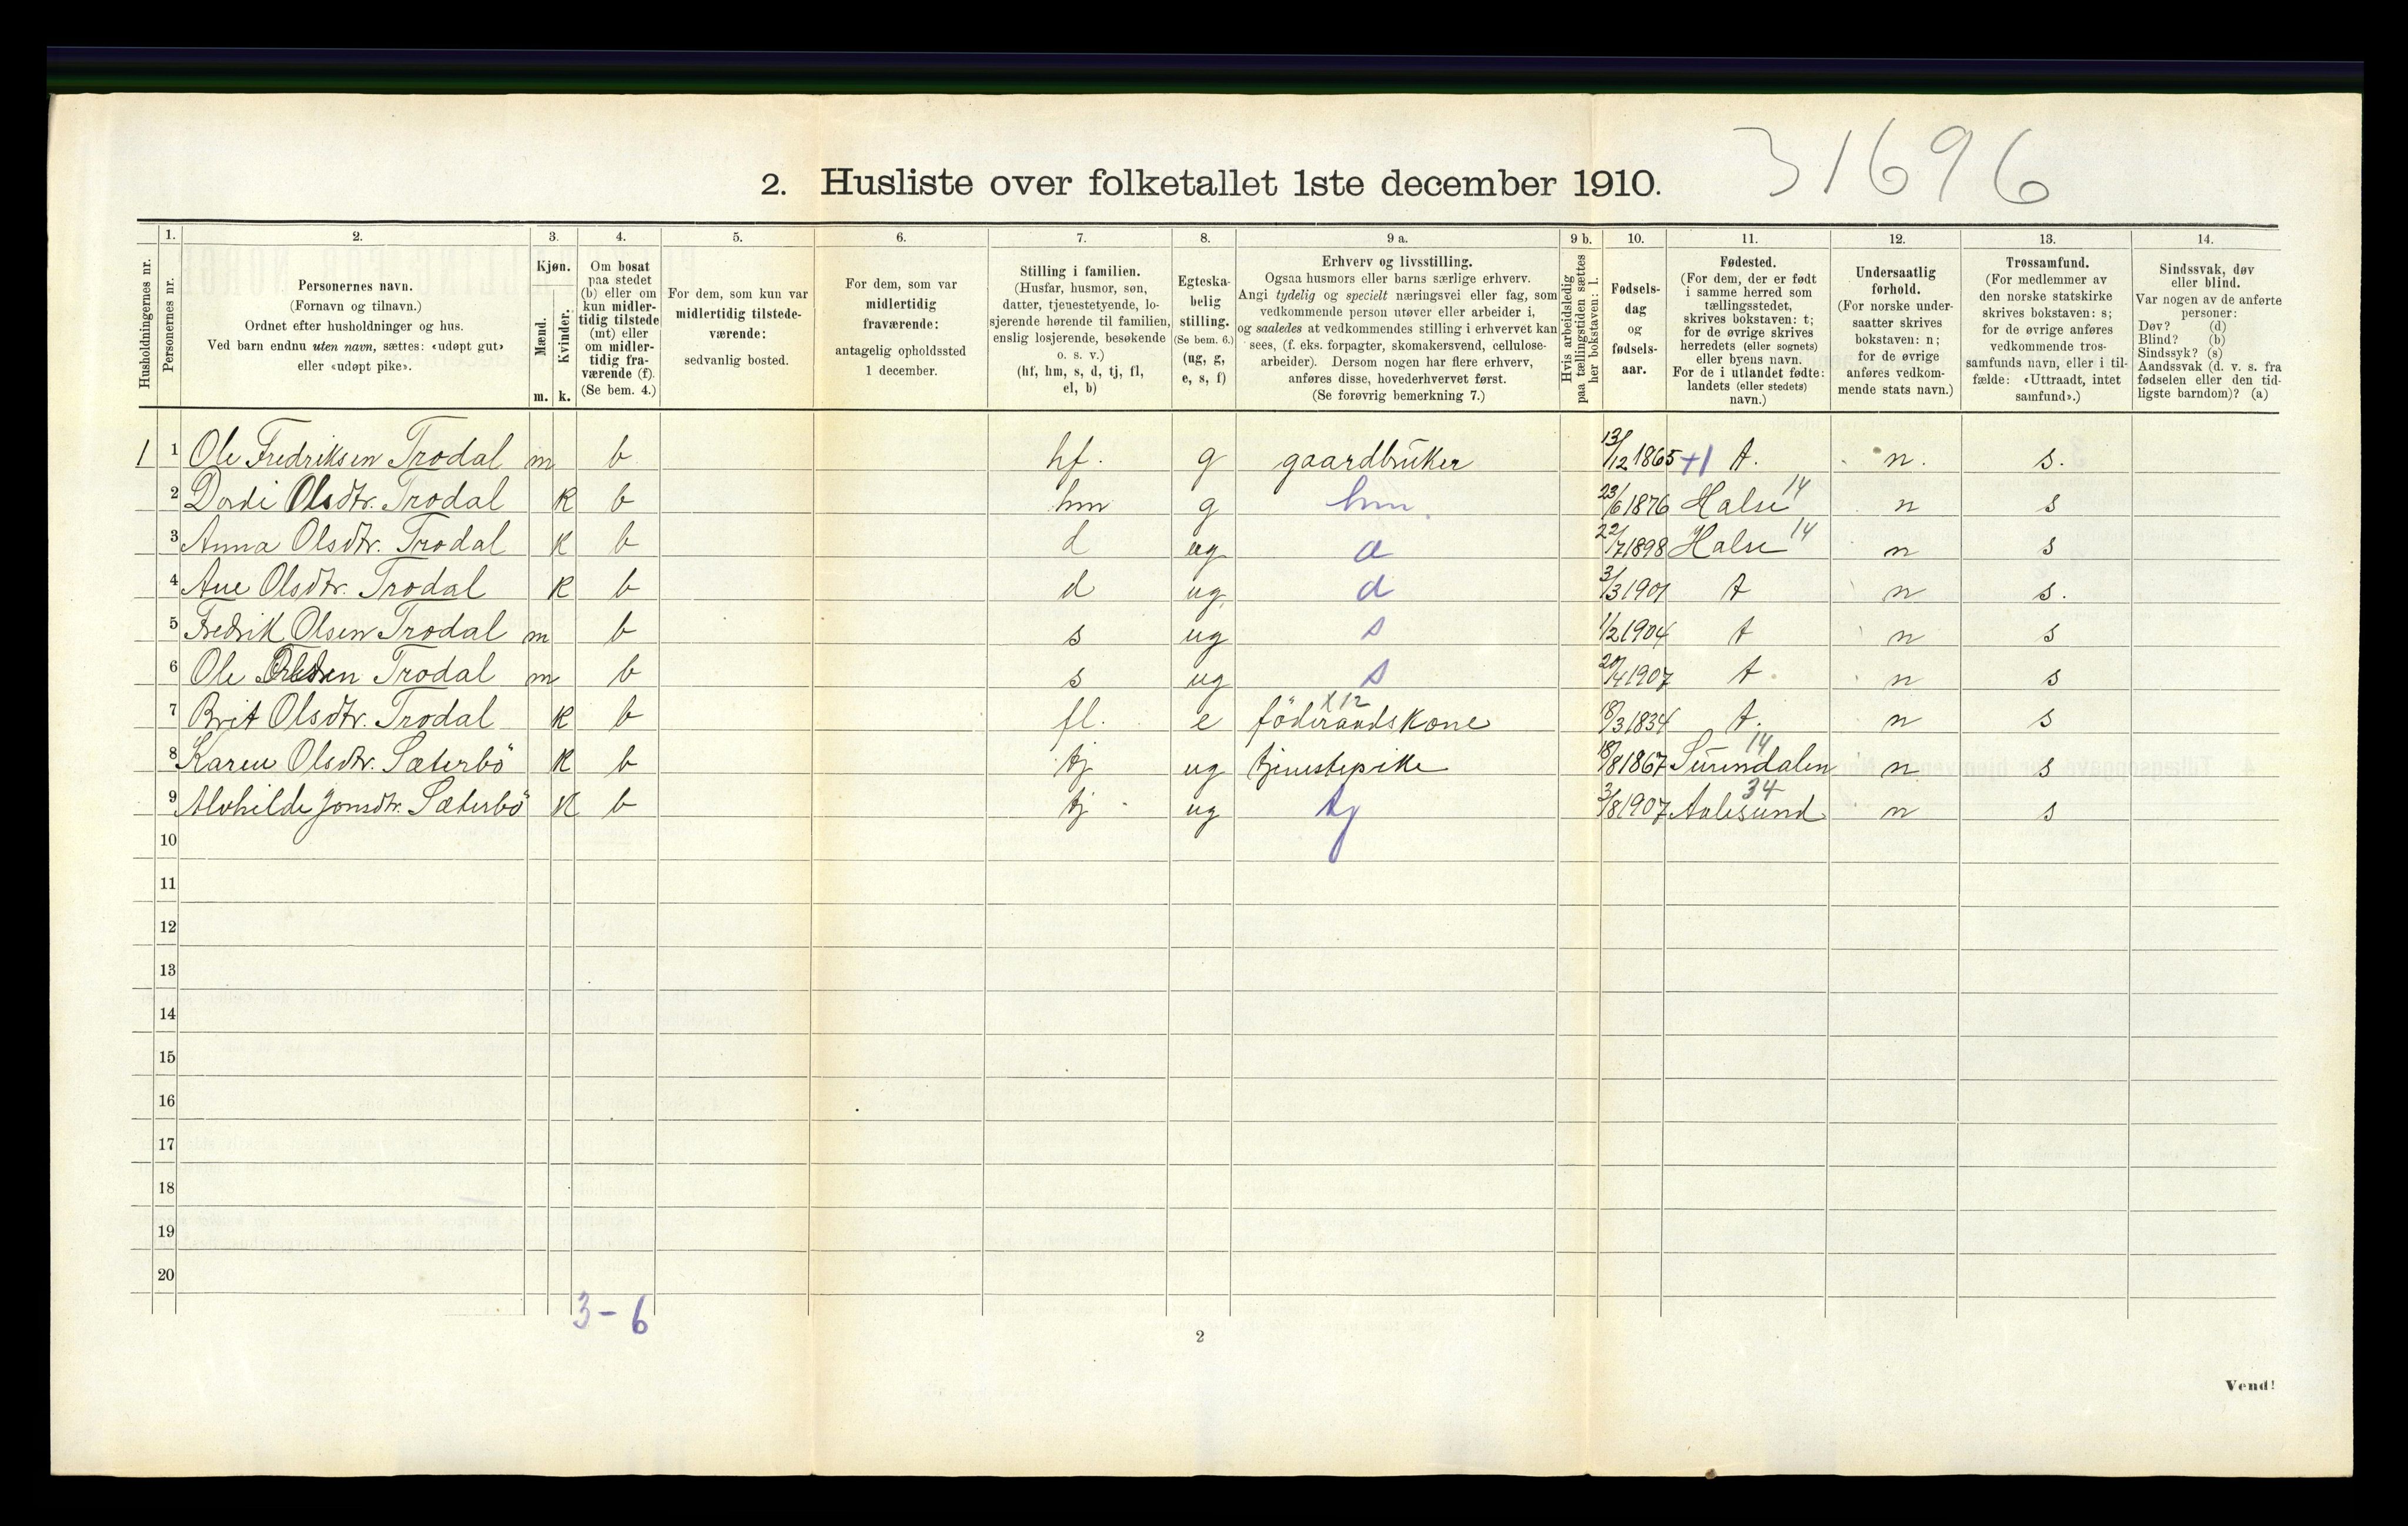 31696
2. Husliste over folketallet 1ste december 1910.
Husholdningernes nr.
1.
Personernes nr.
2.
Personernes navn.
(Fornavn og tilnavn.)
Ordnet efter husholdninger og hus.
Ved barn endnu uten navn, sættes: «udøpt gut»
eller «udøpt pike».
3.
Kjøn.
Mænd. Kvinder.
m. k.
4.
Om bosat
paa stedet
(b) eller om
kun midler-
tidig tilstede
(mt) eller
om midler-
tidig fra-
værende (f).
(Se bem. 4.)
5.
For dem, som kun var
midlertidig tilstede-
værende:
sedvanlig bosted.
6.
For dem, som var
midlertidig
fraværende:
antagelig opholdssted
1 december.
7.
Stilling i familien.
(Husfar, husmor, søn,
datter, tjenestetyende, lo-
sjerende hørende til familien,
enslig losjerende, besøkende
o. s. v.)
(hf, hm, s, d, tj, fl,
el, b)
8.
Egteska-
belig
stilling.
(Se bem. 6.)
(ug, g,
e, s, f)
9 a.
Erhverv og livsstilling.
Ogsaa husmors eller barns særlige erhverv.
Angi tydelig og specielt næringsvei eller fag, som
vedkommende person utøver eller arbeider i,
og saaledes at vedkommendes stilling i erhvervet kan
sees, (f. eks. forpagter, skomakersvend, cellulose-
arbeider). Dersom nogen har flere erhverv,
anføres disse, hovederhvervet først.
(Se forøvrig bemerkning 7.)
9 b.
Hvis arbeidsledig
paa tællingstiden sættes
her bokstaven: l.
10.
Fødsels-
dag
og
fødsels-
aar.
11.
Fødested.
(For dem, der er født
i samme herred som
tællingsstedet,
skrives bokstaven: t;
for de øvrige skrives
herredets (eller sognets)
eller byens navn.
For de i utlandet fødte:
landets (eller stedets)
navn.)
12.
Undersaatlig
forhold.
(For norske under-
saatter skrives
bokstaven: n;
for de øvrige
anføres vedkom-
mende stats navn.)
13.
Trossamfund.
(For medlemmer av
den norske statskirke
skrives bokstaven: s;
for de øvrige anføres
vedkommende tros-
samfunds navn, eller i til-
fælde: «Uttraadt, intet
samfund».)
14.
Sindssvak, døv
eller blind.
Var nogen av de anførte
personer:
Døv? (d)
Blind? (b)
Sindssyk? (s)
Aandssvak (d. v. s. fra
fødselen eller den tid-
ligste barndom)? (a)
1 1 Ole Fredriksen Trodal m b hf. g gaardbruker 13/12 1865 +1 t. n. s.
2 Dordi Olsdtr. Trodal k b hm g hm. 23/6 1876 Halse 14 n s
3 Anna Olsdtr. Trodal k b d ug d 22/7 1898 Halse 14 n s
4 Ane Olsdtr. Trodal k b d ug d 3/3 1901 t n s.
5 Fredrik Olsen Trodal m b s ug s 1/2 1904 t n s
6 Ole Olsen Trodal m b s ug s 20/4 1907 t n s
7 Brit Olsdtr. Trodal k b fl. e föderaadskone X12 18/3 1834 t. n s
8 Karen Olsdtr. Sæterbö k b tj ug tjenestepike 18/8 1867 Surendalen 14 n s
9 Mohilde Jonsdtr. Sæterbö k b tj ug tj 3/8 1907 Aalesund 34 n s
10
11
12
13
14
15
16
17
18
19
20
3-6
2
Vend!